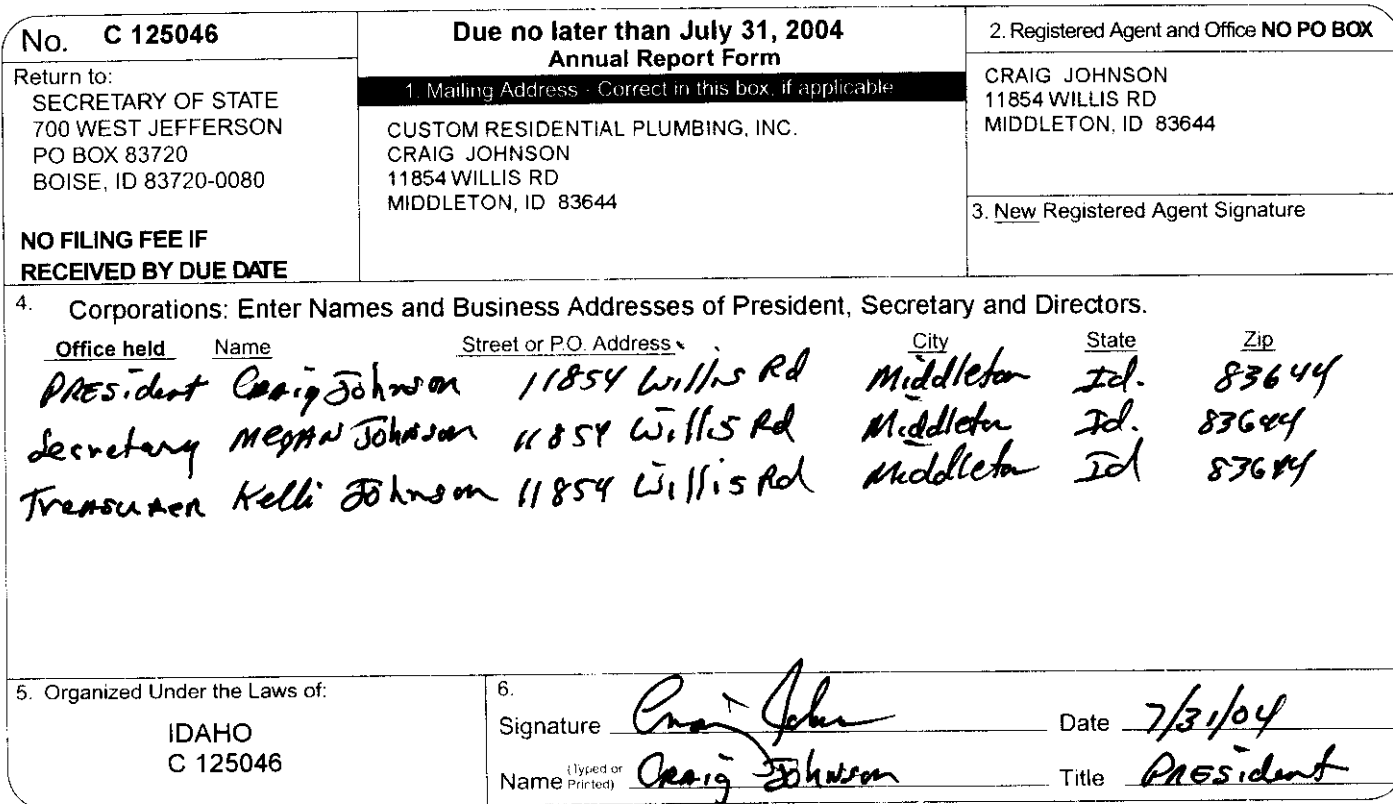 No. C 125046
Return to:
SECRETARY OF STATE
700 WEST JEFFERSON
PO BOX 83720
BOISE, ID 83720-0080
NO FILING FEE IF
RECEIVED BY DUE DATE
Due no later than July 31, 2004
Annual Report Form
1. Mailing Address - Correct in this box, if applicable
CUSTOM RESIDENTIAL PLUMBING, INC.
CRAIG JOHNSON
11854 WILLIS RD
MIDDLETON, ID 83644
2. Registered Agent and Office NO PO BOX
CRAIG JOHNSON
11854 WILLIS RD
MIDDLETON, ID 83644
3. New Registered Agent Signature
4. Corporations: Enter Names and Business Addresses of President, Secretary and Directors.
Office held Name Street or P.O. Address City State Zip
President Craig Johnson 11854 Willis Rd Middleton Id. 83644
Secretary Megan Johnson 11854 Willis Rd Middleton Id. 83644
Treasurer Kelli Johnson 11854 Willis Rd Middleton Id 83644
5. Organized Under the Laws of:
IDAHO
C 125046
6.
Signature Craig Johnson Date 7/31/04
Name (Typed or Printed) Craig Johnson Title President